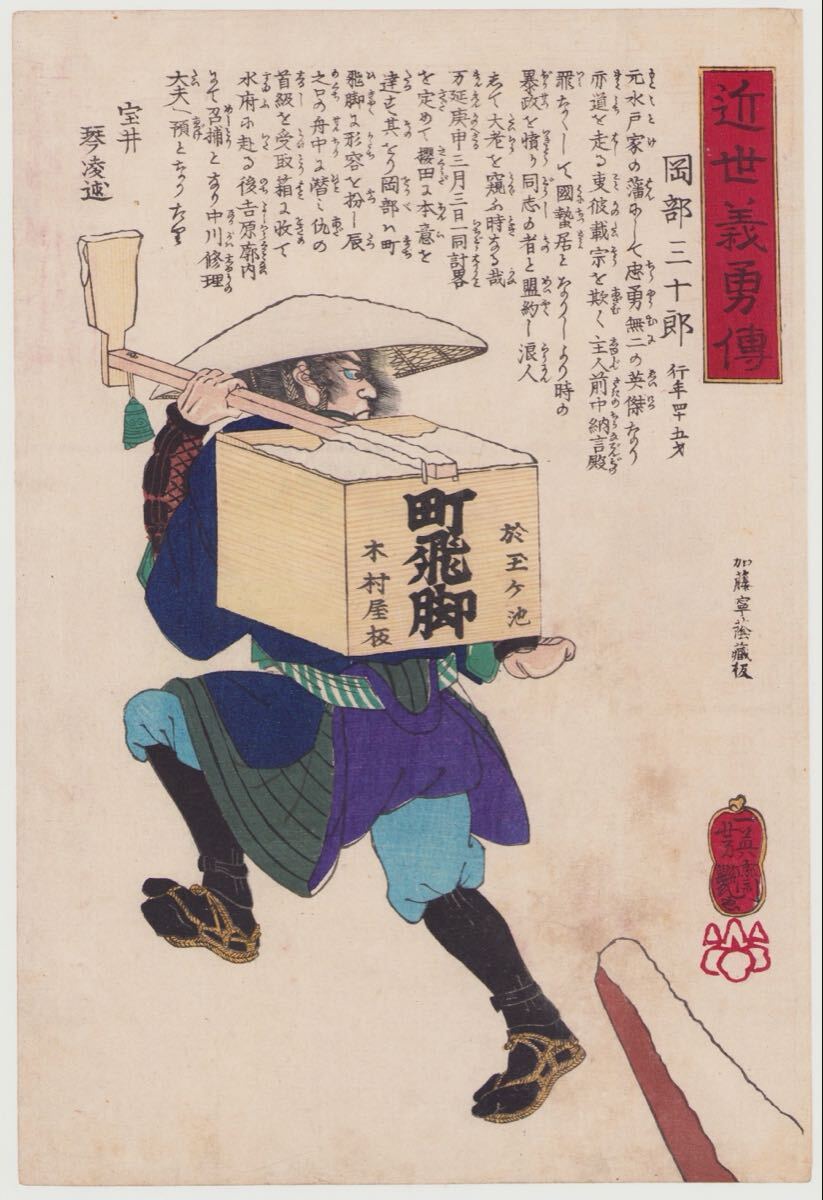 近世義勇傳
岡部三十郎 行年四十五才
元水戸家の藩にして忠勇無二の英傑なり
亦道を走る東彼載宗を欺く主人前中納言殿
罪なくして國蟄居となりしより時の
暴政を憤り同志の者と盟約し浪人
して大老を窺ふ時なる哉
万延庚申三月三日一同計畧
を定めて櫻田に本意を
達す其をり岡部は町
飛脚に形容を扮し辰
之口の舟中に潜み仇の
首級を受取箱に收て
水府に赴る後吉原廓内
にて召捕となり中川修理
大夫へ預となりたり
宝井
琴凌述
於玉ヶ池
町飛脚
木村屋板
加藤寧蔭藏板
一英齋
芳艶画